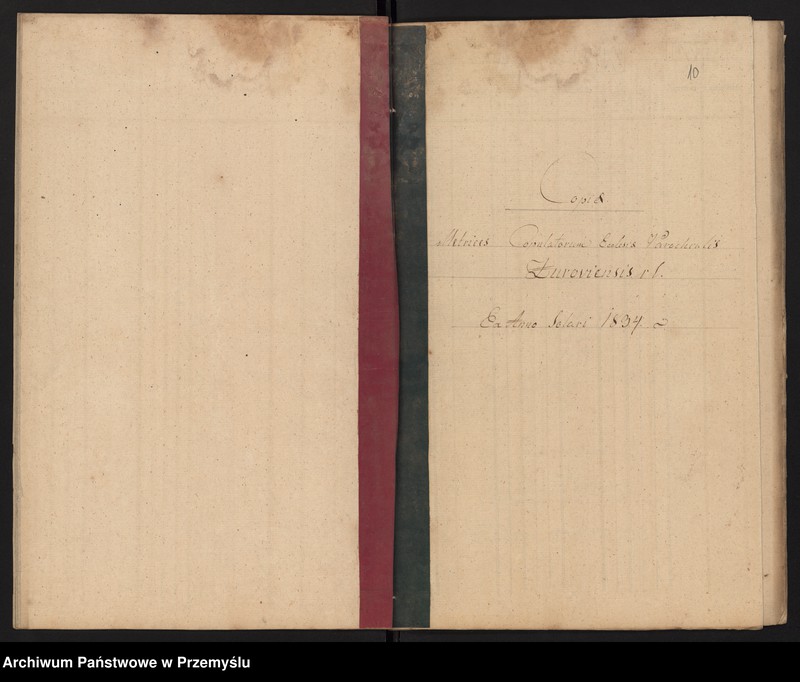 10
Copia
Metrices Copulatorum Eccles Parochialis
Żuroviensis r l.
Ex Anno Solari 1834
Archiwum Państwowe w Przemyślu